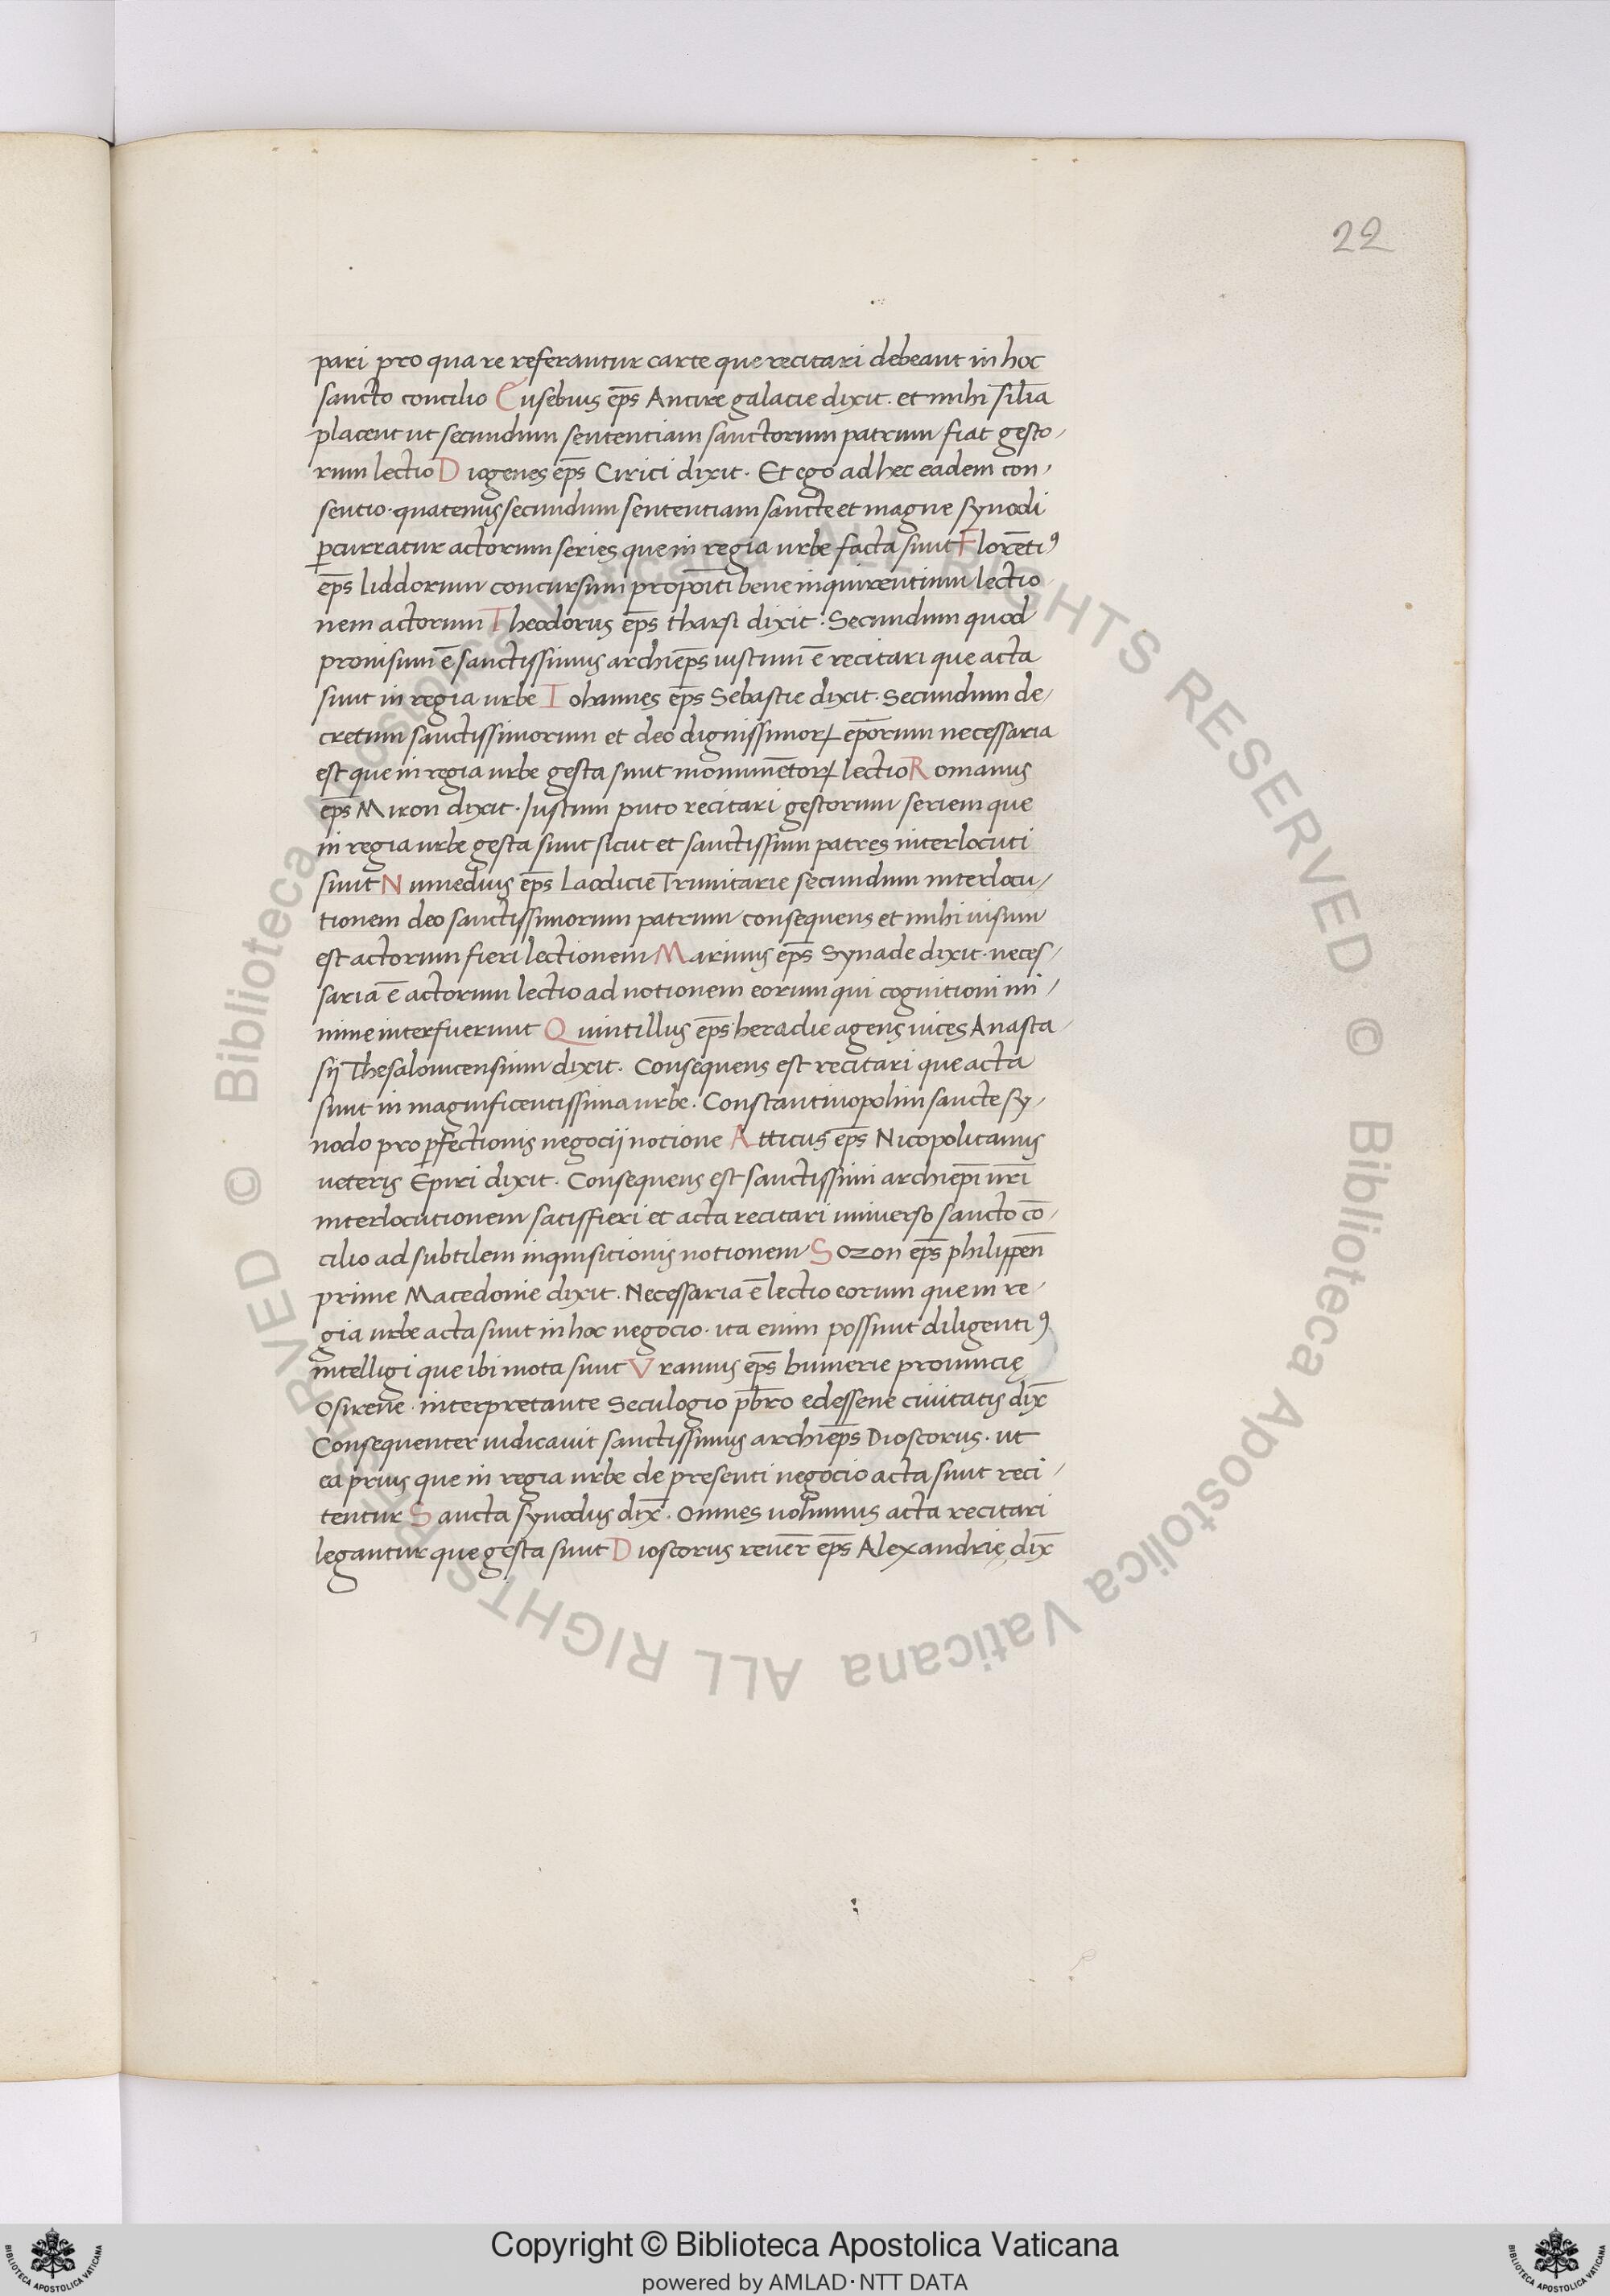 22
pari pro qua re referantur carte que recitari debeant in hoc
sancto concilio Eusebius ep̄s Ancire galacie dixit. et mihi silīa
placent ut secundum sententiam sanctorum patrum fiat gesto/
rum lectio Diogenes ep̄s Cirici dixit. Et ego ad hec eadem con/
sentio. quatenus secundum sententiam sancte et magne synodi
ꝑcurratur actorum series que in regia urbe facta sunt Florētiꝯ
ep̄s Liddorum concursum propōiti bene inquirentium lectio
nem actorum Theodorus ep̄s tharsi dixit. Secundum quod
prouisum ē sanctissimus archiep̄s iustum ē recitari que acta
sunt in regia urbe Iohannes ep̄s Sebastie dixit. Secundum de/
cretum sanctissimorum et deo dignissimoꝝ ep̄orum necessaria
est que in regia urbe gesta sunt monumētoꝝ lectio Romanus
ep̄s Miron dixit. Iustum puto recitari gestorum seriem que
in regia urbe gesta sunt sicut et sanctissimi patres interlocuti
sunt Numedius ep̄s Laodicie Trimitarie secundum interlocu/
tionem deo sanctissimorum patrum consequens et mihi uisum
est actorum fieri lectionem Marinus ep̄s Synade dixit. neces/
saria ē actorum lectio ad notionem eorum qui cognitioni mi/
nime interfuerunt Quintillus ep̄s heraclie agens uices Anasta/
sij Thesalonicensium dixit. Consequens est recitari que acta
sunt in magnificentissima urbe. Constantinopolim sancte sy/
nodo pro ꝑfectionis negocij notione Atticus ep̄s Nicopolitanus
ueteris Epiri dixit. Consequens est sanctissimi archiep̄i nr̄i
interlocutionem satisfieri et acta recitari uniuerso sancto cō/
cilio ad subtilem inquisitionis notionem Sozon ep̄s philippen̄
prime Macedonie dixit. Necessaria ē lectio eorum que in re/
gia urbe acta sunt in hoc negocio. ita enim possunt diligentiꝯ
intelligi que ibi mota sunt Uranius ep̄s humerie prouincię
Osirene. interpretante Seculogio p̄bro edessene ciuitatis dix̄
Consequenter iudicauit sanctissimus archiep̄s Dioscorus. ut
ea prius que in regia urbe de presenti negocio acta sunt reci/
tentur Sancta synodus dix̄. Omnes uolumus acta recitari
legantur que gesta sunt Dioscorus reuer̄ ep̄s Alexandrię dix̄
© Biblioteca Apostolica Vaticana ALL RIGHTS RESERVED © Biblioteca Apostolica Vaticana ALL RIGHTS RESERVED
Copyright © Biblioteca Apostolica Vaticana
powered by AMLAD·NTT DATA
BIBLIOTECA APOSTOLICA VATICANA
BIBLIOTECA APOSTOLICA VATICANA